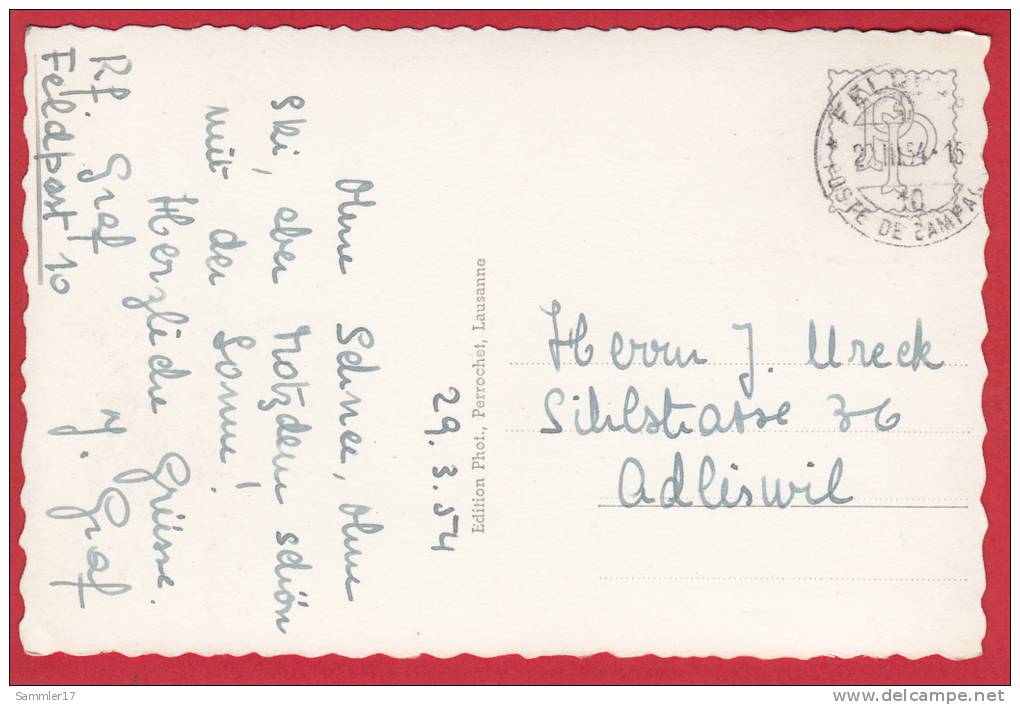 29. 3. 54
Ohne Schnee, ohne
Ski, aber trotzdem schön
mit der Sonne!
Herzliche Grüsse.
Y. Graf
Rf. Graf
Feldpost 10
Edition Phot., Perrochet, Lausanne
FELDP
III.54.
30
POSTE DE CAMPAG
Herrn J. Ureck
Sihlstrasse 36
Adliswil
Sammler17
www.delcampe.net